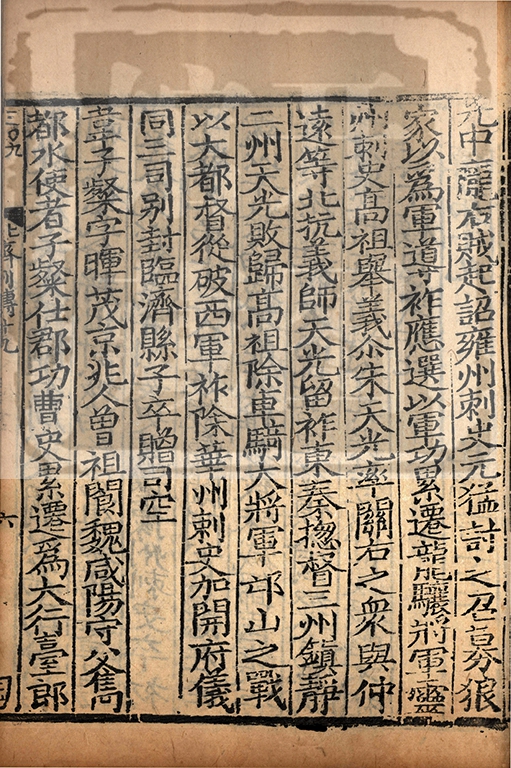 光中隴右賊起詔雍州刺史元猛討之召募狼
家以為軍導祚應選以軍功累遷龍驤將軍靈
州刺史高祖舉義尒朱天光率關右之衆與仲
遠等北抗義師天光留祚東秦揔督三州鎮靜
二州天光敗歸高祖除車騎大將軍邙山之戰
以大都督從破西軍祚除華州刺史加開府儀
同三司别封臨濟縣子卒贈司空
韋子粲字暉茂京兆人曾祖閬魏咸陽守父雋
都水使者子粲仕郡功曹史累遷爲大行臺郎
二〇九
六